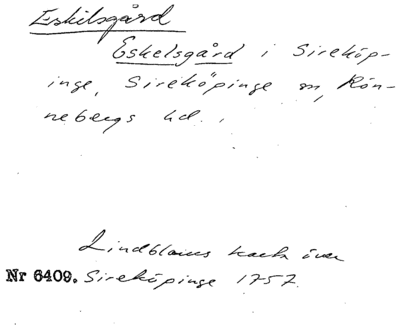 Eskilsgård
Eskelsgård i Sireköp-
inge, Sireköpinge sn, Rön-
nebergs hd.
Lindbloms karta över
Nr 6409. Sireköpinge 1757.